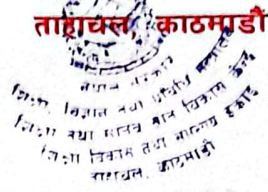 ताहाचल, काठमाडौं
नेपाल सरकार
शिक्षा, विज्ञान तथा प्रविधि मन्त्रालय
शिक्षा तथा मानव स्रोत विकास केन्द्र
शिक्षा विकास तथा समन्वय इकाई
काठमाडौं